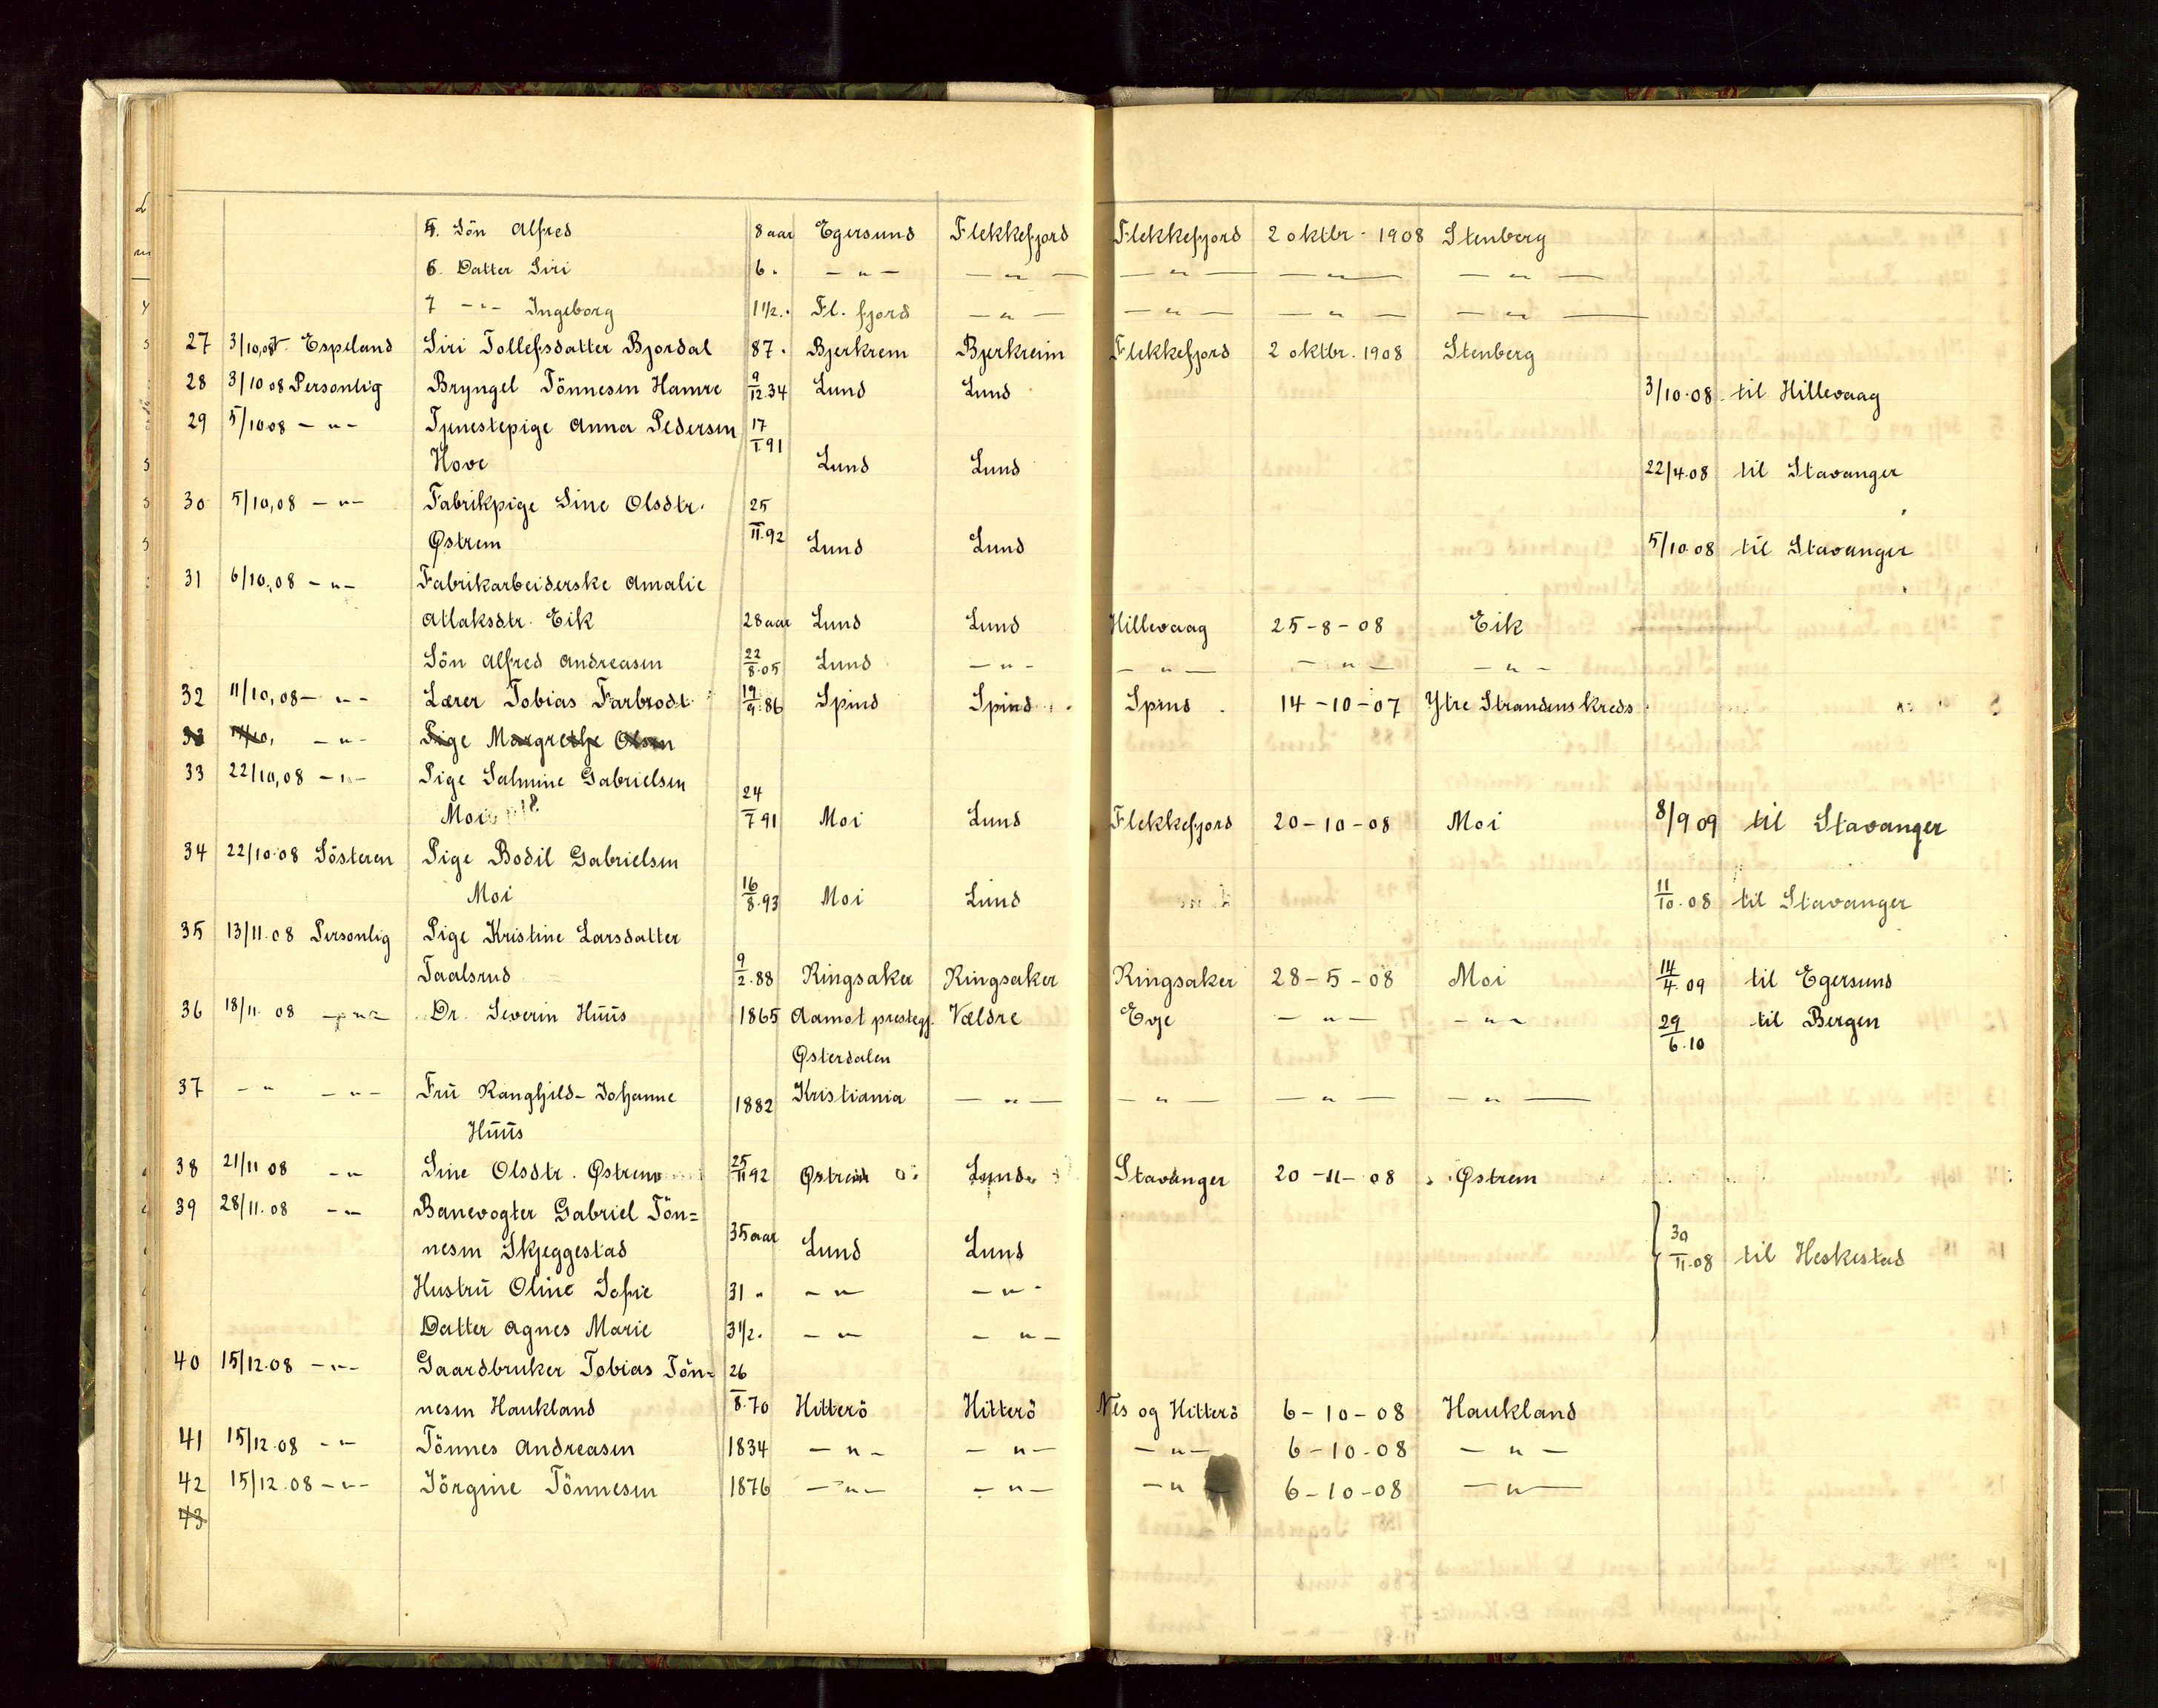 5. Sön Alfred 8 aar Egersund Flekkefjord Flekkefjord 2 oktbr. 1908 Stenberg
6. Datter Siri 6 " — " — — " — — " — — " — — " —
7 — " — Ingeborg 1 1/2 " Fl. fjord — " — — " — — " — — " —
27 3/10,08 T. Espeland Siri Tollefsdatter Bjordal 87 " Bjerkrem Bjerkreim Flekkefjord 2 oktbr. 1908 Stenberg
28 3/10 08 Personlig Bryngel Tönnesen Hamre 9/12.34 Lund Lund 3/10.08. til Hillevaag
29 5/10 08 — " — Tjenestepige Anna Pedersen 17/I 91
Hove Lund Lund 22/4.08 til Stavanger
30 5/10,08 — " — Fabrikpige Sine Olsdtr. 25/II.92
Østrem Lund Lund 5/10 08 til Stavanger
31 6/10,08 — " — Fabrikarbeiderske Amalie
Atlaksdtr. Eik 28 aar Lund Lund Hillevaag 25-8-08 Eik
Sön Alfred Andreasen 22/8.05 Lund — " — — " — — " — — " —
32 11/10,08 — " — Lærer Tobias Farbrodt 19/9.86 Spind Spind Spind 14-10-07 Ytre Strandens kreds
33 — " — Pige Margrethe Olsen
33 22/10,08 — " — Pige Salmine Gabrielsen
Moi 24/7 91 Moi Lund Flekkefjord 20-10-08 Moi 8/9 09 til Stavanger
34 22/10.08 Sösteren Pige Bodil Gabrielsen
Moi 16/8.93 Moi Lund 11/10.08 til Stavanger
35 13/11.08 Personlig Pige Kristine Larsdatter
Taalsrud 9/2.88 Ringsaker Ringsaker Ringsaker 28-5-08 Moi 14/4.09 til Egersund
36 18/11.08 — " — Dr. Severin Huus 1865 Aamot prestegj. Vældre Evje — " — — " — 29/6.10 til Bergen
Østerdalen
37 — " — — " — Fru Ranghild-Johanne 1882 Kristiania — " — — " — — " — — " —
Huus
38 21/11 08 — " Sine Olsdtr. Østrem 25/II 92 Østrem Lund Stavanger 20-11-08 Østrem
39 28/11.08 — " — Banevogter Gabriel Tön=
nesen Skjeggestad 35 aar Lund Lund 30/11.08 til Heskestad
Hustru Oline Sofie 31 " — " — — " —
Datter Agnes Marie 3 1/2 " — " — — " —
40 15/12.08 — " — Gaardbruker Tobias Tön= 26/8.70
nesen Haukland Hitterö Hitterö Nes og Hitterö 6-10-08 Haukland
41 15/12.08 — " — Tönnes Andreasen 1834 — " — — " — — " — 6-10-08 — " —
42 15/12.08 — " — Jörgine Tönnesen 1876 — " — — " — — " 6-10-08 — " —
43